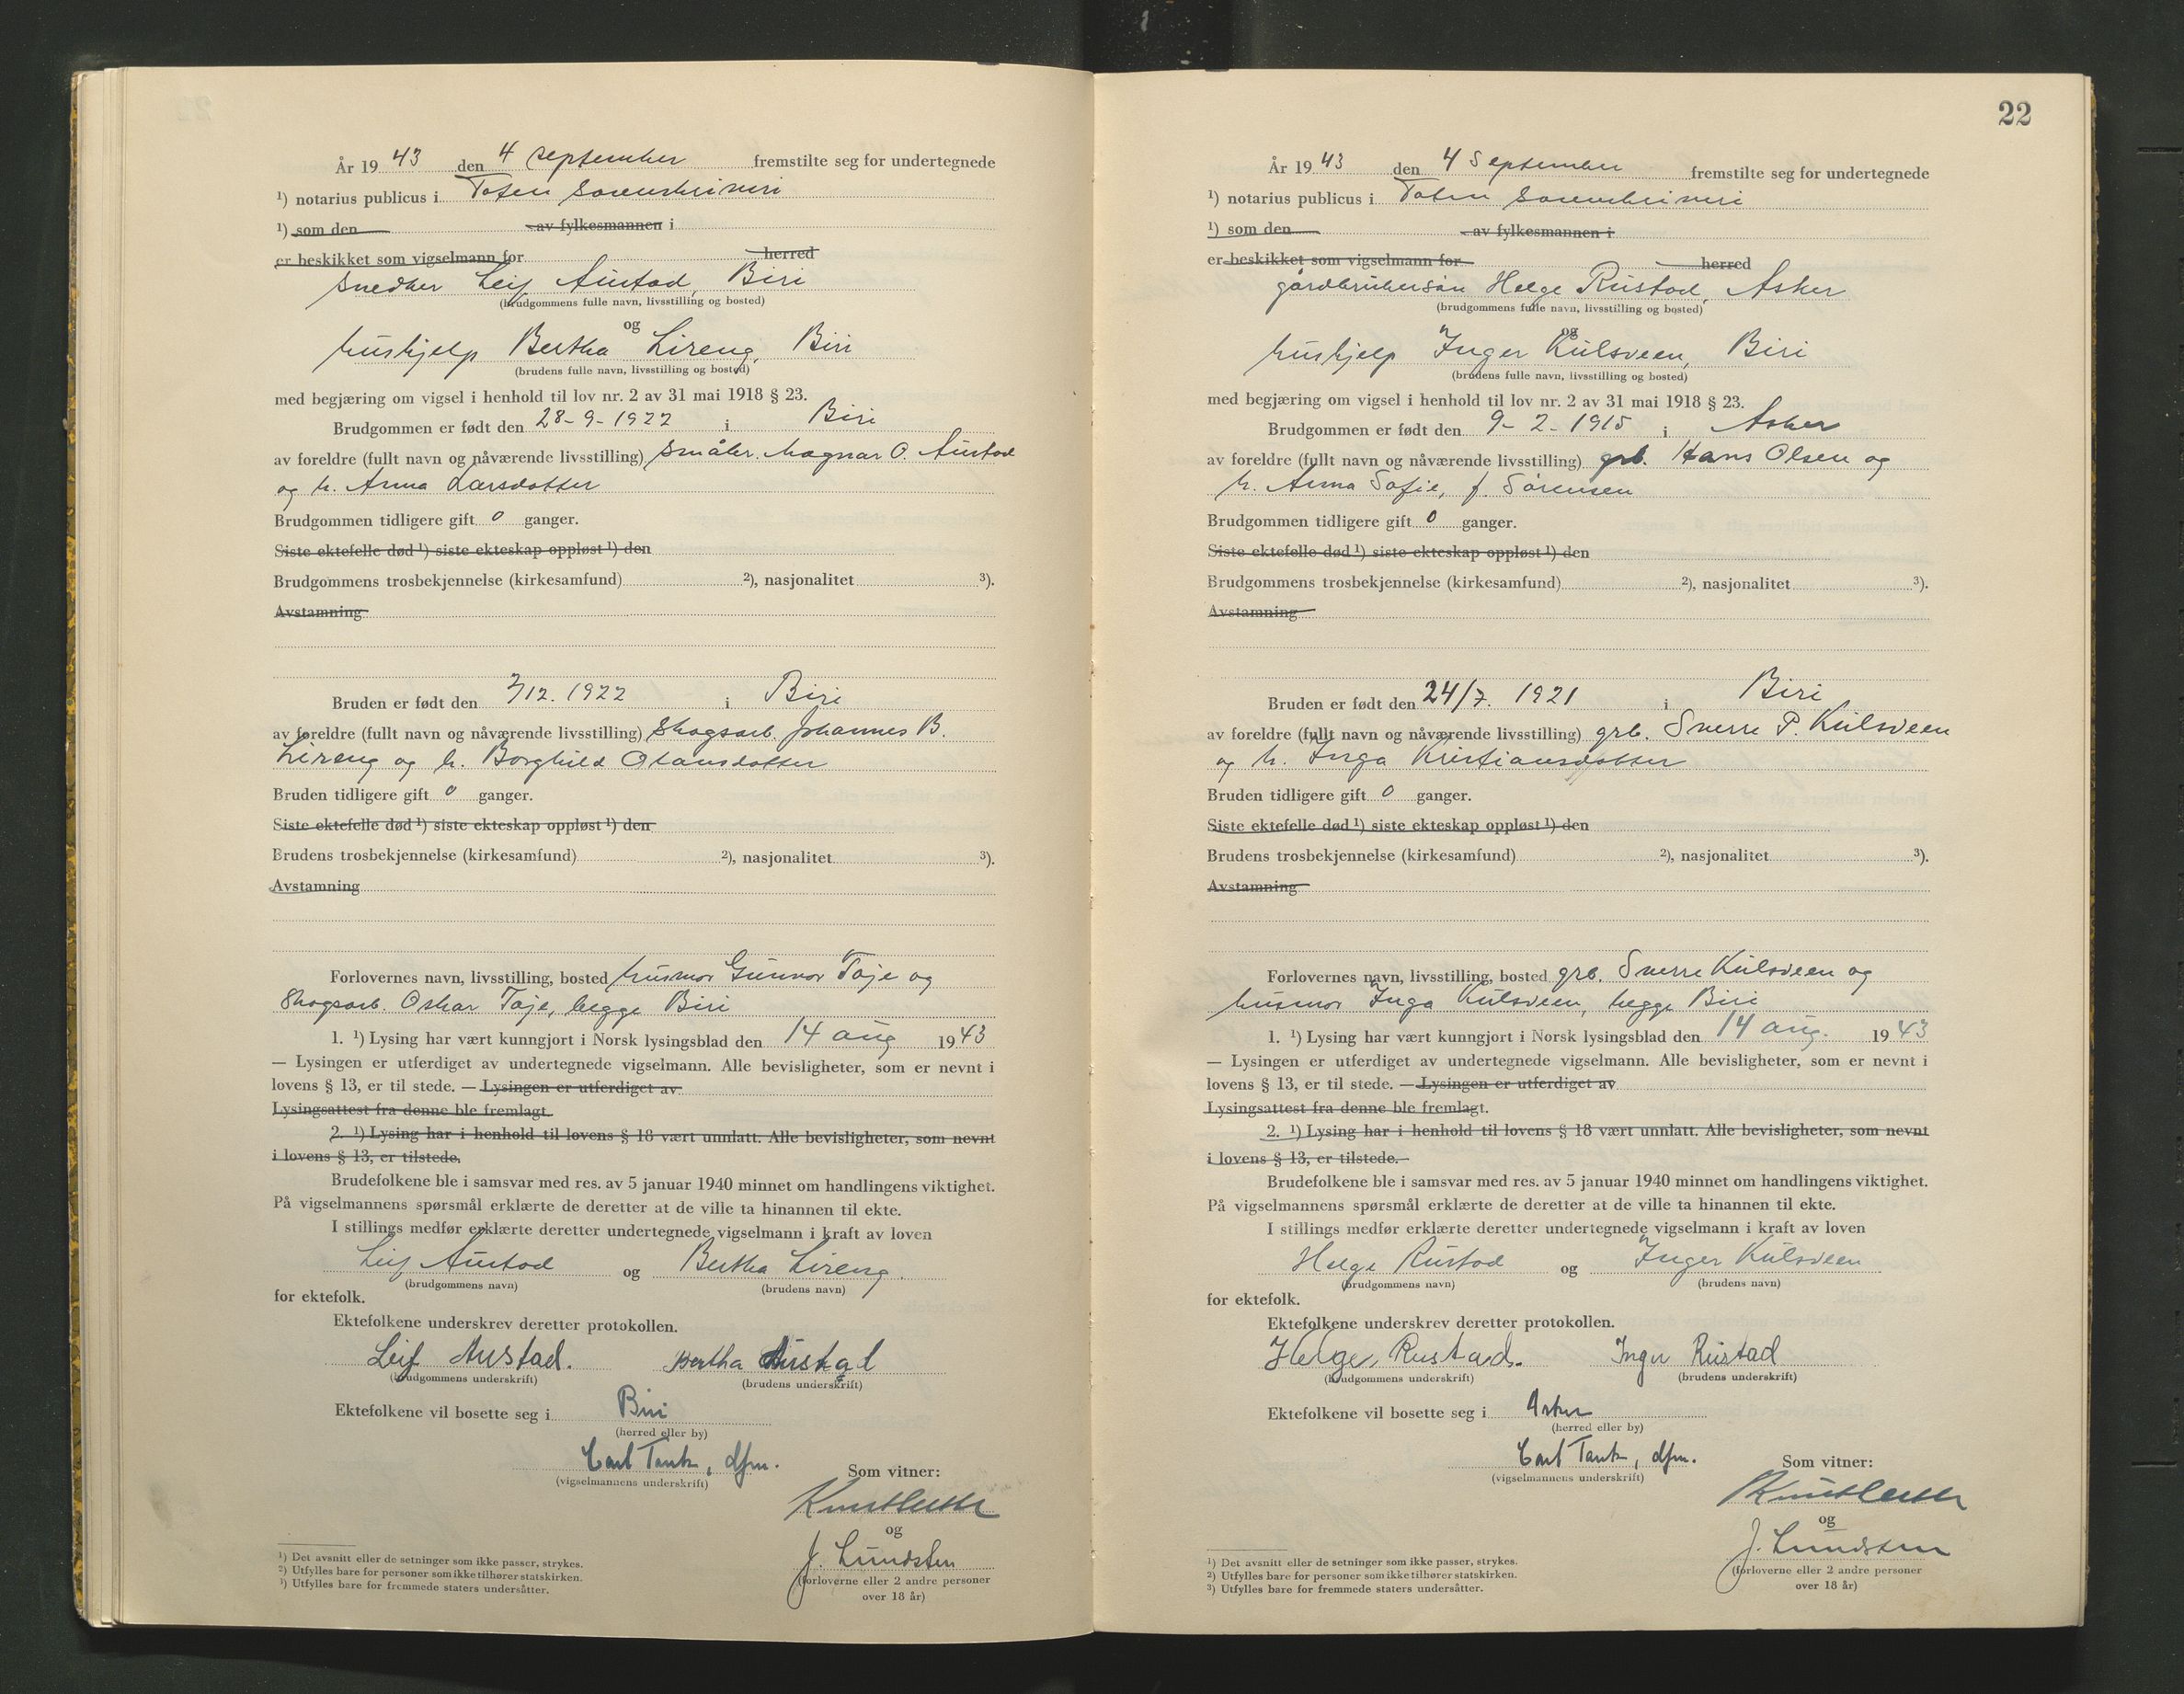 År 19 43 den 4 september fremstilte seg for undertegnede
¹) notarius publicus i Toten sorenskriveri
¹) som den av fylkesmannen i
er beskikket som vigselmann for herred
snedker Leif Austad, Biri
(brudgommens fulle navn, livsstilling og bosted)
og
hushjelp Bertha Lireng, Biri
(brudens fulle navn, livsstilling og bosted)
med begjæring om vigsel i henhold til lov nr. 2 av 31 mai 1918 § 23.
Brudgommen er født den 28-9-1922 i Biri
av foreldre (fullt navn og nåværende livsstilling) småbr. Magnar O. Austad
og h. Anna Larsdotter
Brudgommen tidligere gift 0 ganger.
Siste ektefelle død ¹) siste ekteskap oppløst ¹) den
Brudgommens trosbekjennelse (kirkesamfund) ²), nasjonalitet ³).
Avstamning
Bruden er født den 2/12. 1922 i Biri
av foreldre (fullt navn og nåværende livsstilling) skogsarb. Johannes B.
Lireng og h. Borghild Olausdotter
Bruden tidligere gift 0 ganger.
Siste ektefelle død ¹) siste ekteskap oppløst ¹) den
Brudens trosbekjennelse (kirkesamfund) ²), nasjonalitet ³).
Avstamning
Forlovernes navn, livsstilling, bosted husmor Gunvor Taje og
skogsarb. Oskar Taje, begge Biri
1. ¹) Lysing har vært kunngjort i Norsk lysingsblad den 14 aug 19 43
— Lysingen er utferdiget av undertegnede vigselmann. Alle bevisligheter, som er nevnt i
lovens § 13, er til stede. — Lysingen er utferdiget av
Lysingsattest fra denne ble fremlagt.
2. ¹) Lysing har i henhold til lovens § 18 vært unnlatt. Alle bevisligheter, som nevnt
i lovens § 13, er tilstede.
Brudefolkene ble i samsvar med res. av 5 januar 1940 minnet om handlingens viktighet.
På vigselmannens spørsmål erklærte de deretter at de ville ta hinannen til ekte.
I stillings medfør erklærte deretter undertegnede vigselmann i kraft av loven
Leif Austad og Bertha Lireng.
(brudgommens navn) (brudens navn)
for ektefolk.
Ektefolkene underskrev deretter protokollen.
Leif Austad. Bertha Austad
(brudgommens underskrift) (brudens underskrift)
Ektefolkene vil bosette seg i Biri
(herred eller by)
Carl Tank, dfm.
(vigselmannens underskrift)
Som vitner:
og
J. Lundsten
(forloverne eller 2 andre personer
over 18 år)
¹) Det avsnitt eller de setninger som ikke passer, strykes.
²) Utfylles bare for personer som ikke tilhører statskirken.
³) Utfylles bare for fremmede staters undersåtter.
22
År 19 43 den 4 September fremstilte seg for undertegnede
¹) notarius publicus i Toten sorenskriveri
¹) som den av fylkesmannen i
er beskikket som vigselmann for herred
gårdbrukersøn Helge Rustad, Asker
(brudgommens fulle navn, livsstilling og bosted)
og
hushjelp Inger Kulsveen, Biri
(brudens fulle navn, livsstilling og bosted)
med begjæring om vigsel i henhold til lov nr. 2 av 31 mai 1918 § 23.
Brudgommen er født den 9-2-1915 i Asker
av foreldre (fullt navn og nåværende livsstilling) grb. Hans Olsen og
h. Anna Sofie, f. Sørensen
Brudgommen tidligere gift 0 ganger.
Siste ektefelle død ¹) siste ekteskap oppløst ¹) den
Brudgommens trosbekjennelse (kirkesamfund) ²), nasjonalitet ³).
Avstamning
Bruden er født den 24/7. 1921 i Biri
av foreldre (fullt navn og nåværende livsstilling) grb. Sverre P. Kulsveen
og h. Inga Kristiansdotter
Bruden tidligere gift 0 ganger.
Siste ektefelle død ¹) siste ekteskap oppløst ¹) den
Brudens trosbekjennelse (kirkesamfund) ²), nasjonalitet ³).
Avstamning
Forlovernes navn, livsstilling, bosted grb. Sverre Kulsveen og
husmor Inga Kulsveen, begge Biri
1. ¹) Lysing har vært kunngjort i Norsk lysingsblad den 14 aug. 19 43
— Lysingen er utferdiget av undertegnede vigselmann. Alle bevisligheter, som er nevnt i
lovens § 13, er til stede. — Lysingen er utferdiget av
Lysingsattest fra denne ble fremlagt.
2. ¹) Lysing har i henhold til lovens § 18 vært unnlatt. Alle bevisligheter, som nevnt
i lovens § 13, er tilstede.
Brudefolkene ble i samsvar med res. av 5 januar 1940 minnet om handlingens viktighet.
På vigselmannens spørsmål erklærte de deretter at de ville ta hinannen til ekte.
I stillings medfør erklærte deretter undertegnede vigselmann i kraft av loven
Helge Rustad og Inger Kulsveen
(brudgommens navn) (brudens navn)
for ektefolk.
Ektefolkene underskrev deretter protokollen.
Helge Rustad. Inger Rustad
(brudgommens underskrift) (brudens underskrift)
Ektefolkene vil bosette seg i Asker
(herred eller by)
Carl Tank, dfm.
(vigselmannens underskrift)
Som vitner:
og
J. Lundsten
(forloverne eller 2 andre personer
over 18 år)
¹) Det avsnitt eller de setninger som ikke passer, strykes.
²) Utfylles bare for personer som ikke tilhører statskirken.
³) Utfylles bare for fremmede staters undersåtter.